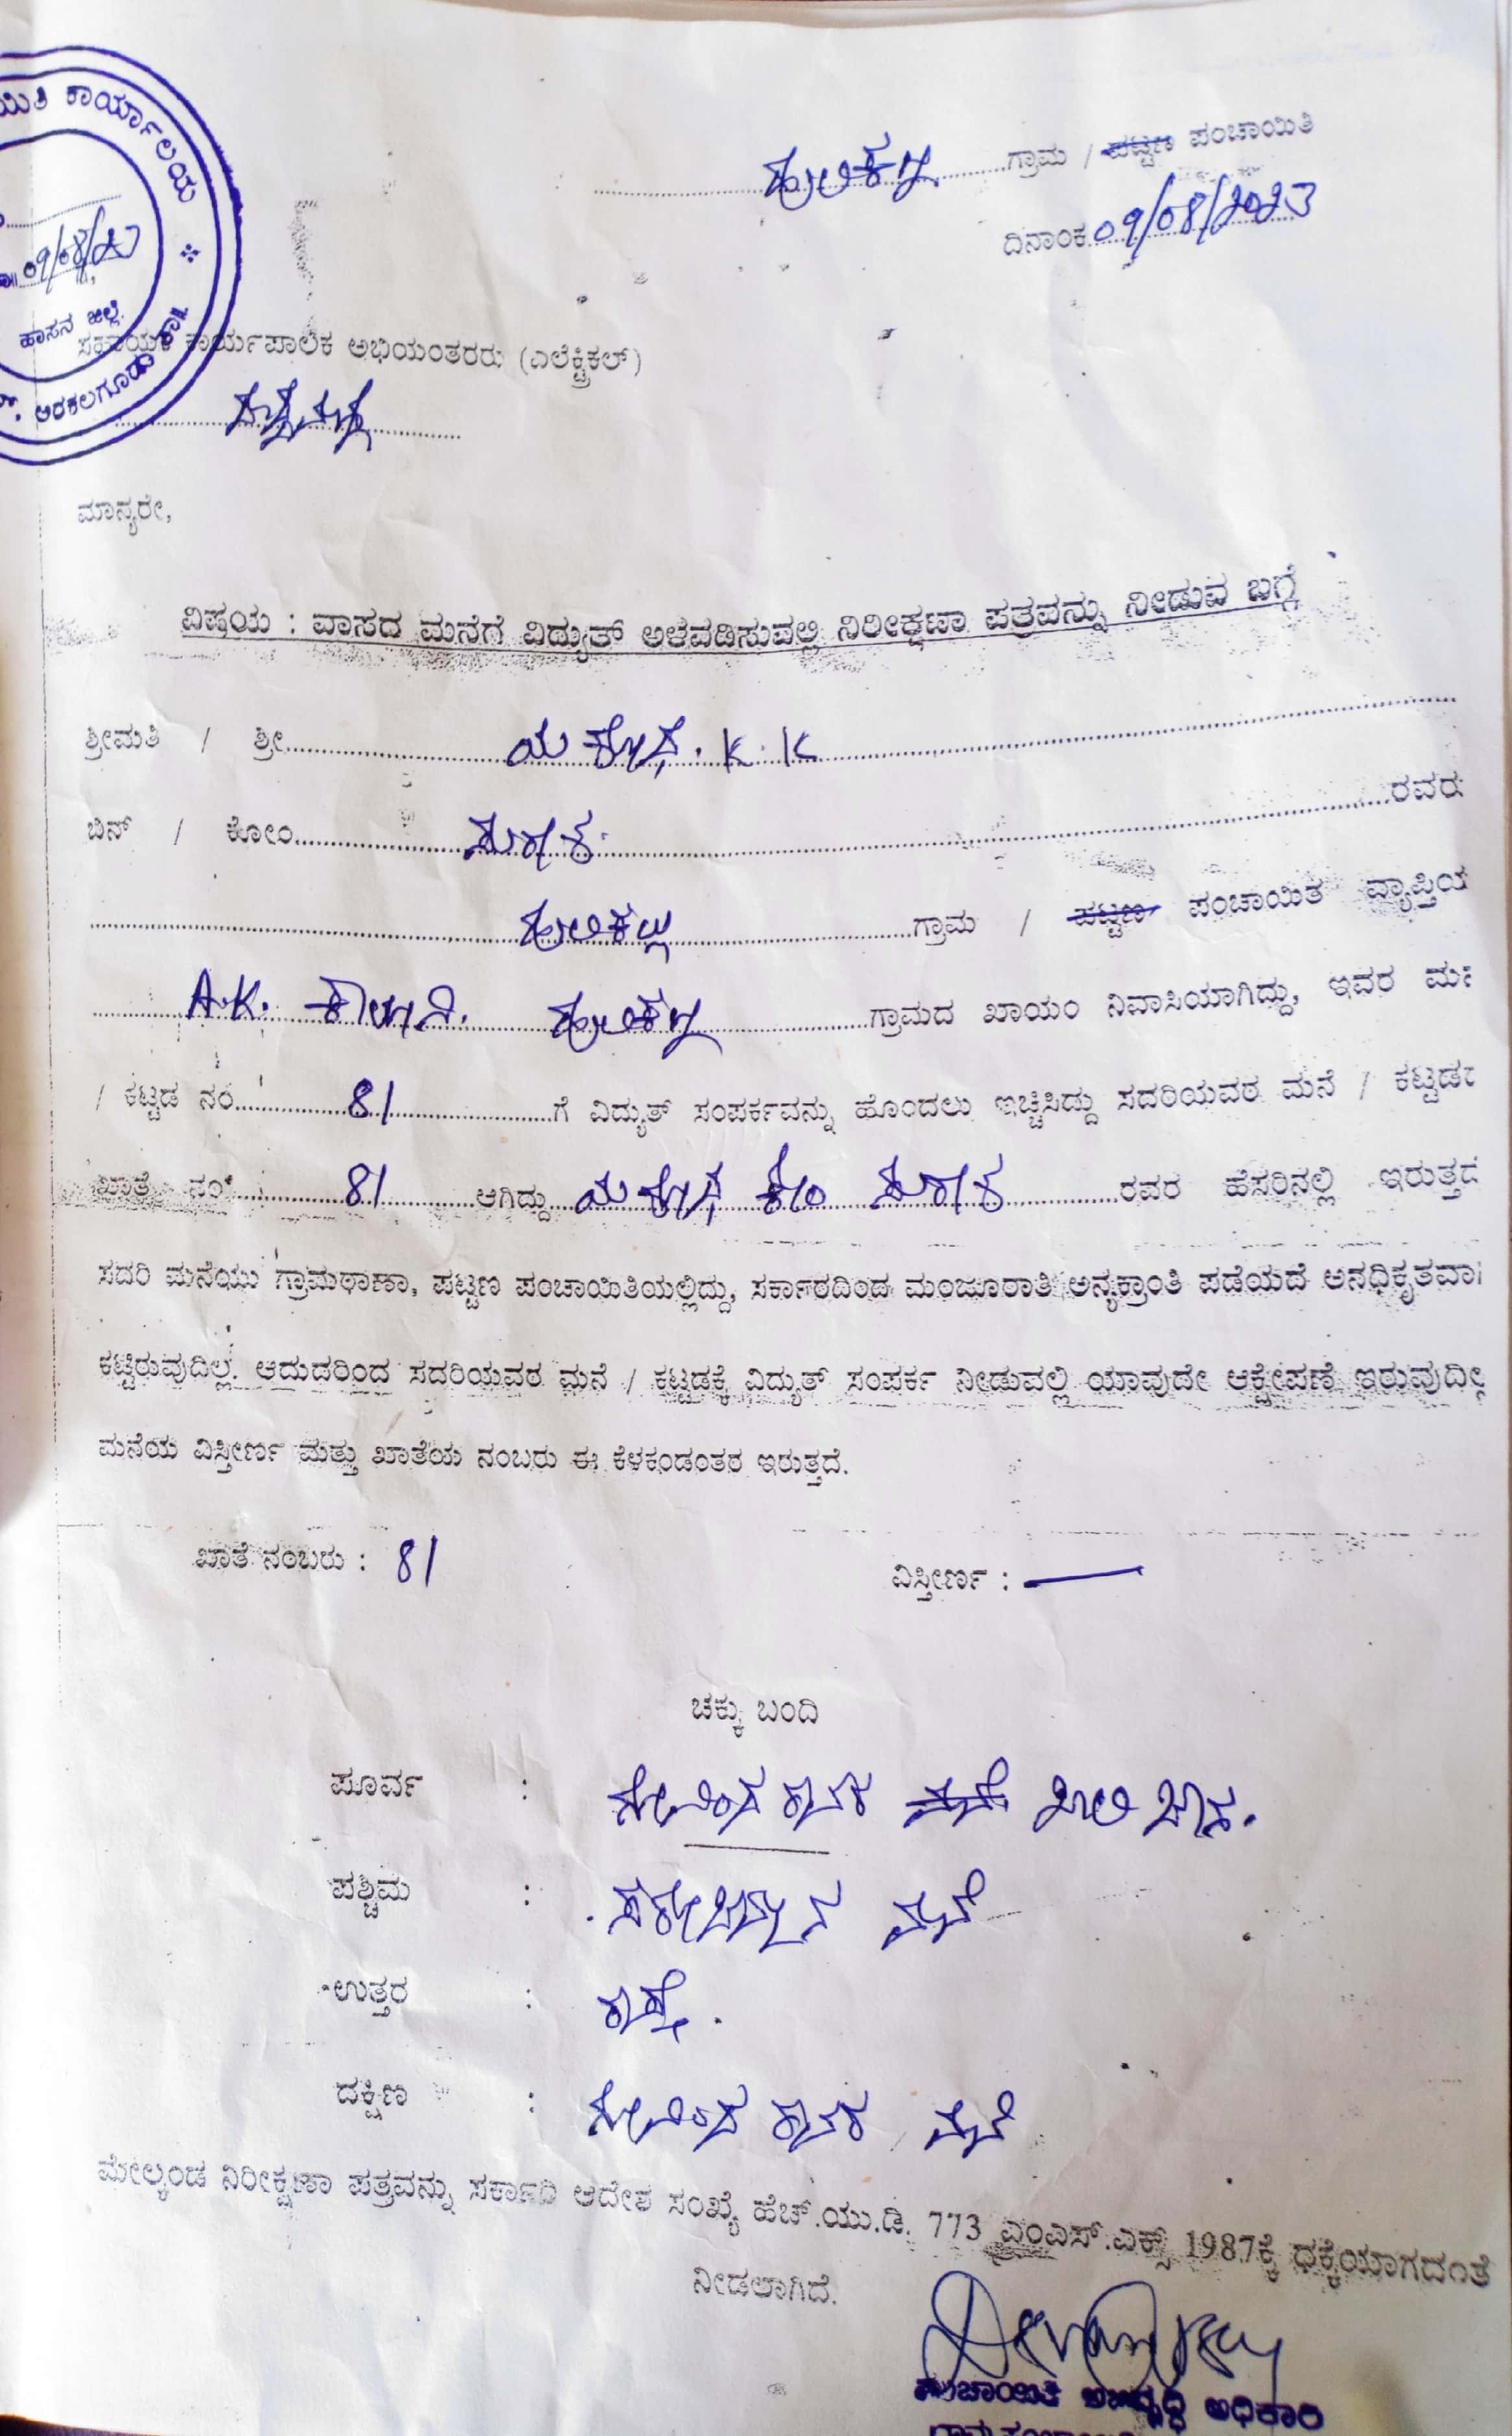 ಕಾರ್ಯಾಲಯ
09/08/23
ಹಾಸನ ಜಿಲ್ಲೆ.
ಅರಕಲಗೂಡು
ಗ್ರಾಮ / ಪಟ್ಟಣ ಪಂಚಾಯಿತಿ
ದಿನಾಂಕ 09/08/2023
ಸಹಾಯಕ ಕಾರ್ಯಪಾಲಕ ಅಭಿಯಂತರರು (ಎಲೆಕ್ಟ್ರಿಕಲ್)
ಮಾನ್ಯರೇ,
ವಿಷಯ : ವಾಸದ ಮನೆಗೆ ವಿದ್ಯುತ್ ಅಳವಡಿಸುವಲ್ಲಿ ನಿರೀಕ್ಷಣಾ ಪತ್ರವನ್ನು ನೀಡುವ ಬಗ್ಗೆ
ಶ್ರೀಮತಿ / ಶ್ರೀ ಯಶೋಧ. K. K
ಬಿನ್ / ಕೋಂ ರವರು
ಹುಲಿಕಲ್ಲು ಗ್ರಾಮ / ಪಟ್ಟಣ ಪಂಚಾಯಿತ ವ್ಯಾಪ್ತಿಯ
A.K. ಕಾಲೋನಿ. ಹುಲಿಕಲ್ ಗ್ರಾಮದ ಖಾಯಂ ನಿವಾಸಿಯಾಗಿದ್ದು, ಇವರ
/ ಕಟ್ಟಡ ನಂ 81 ಗೆ ವಿದ್ಯುತ್ ಸಂಪರ್ಕವನ್ನು ಹೊಂದಲು ಇಚ್ಚಿಸಿದ್ದು ಸದರಿಯವರ ಮನೆ /
ಖಾತೆ ನಂ 81 ಆಗಿದ್ದು ಯಶೋಧ ಕೋಂ ರವರ ಹೆಸರಿನಲ್ಲಿ
ಸದರಿ ಮನೆಯು ಗ್ರಾಮಠಾಣಾ, ಪಟ್ಟಣ ಪಂಚಾಯಿತಿಯಲ್ಲಿದ್ದು, ಸರ್ಕಾರದಿಂದ ಮಂಜೂರಾತಿ ಅನ್ಯಕ್ರಾಂತಿ ಪಡೆಯದೆ
ಕಟ್ಟಿರುವುದಿಲ್ಲ. ಆದುದರಿಂದ ಸದರಿಯವರ ಮನೆ / ಕಟ್ಟಡಕ್ಕೆ ವಿದ್ಯುತ್ ಸಂಪರ್ಕ ನೀಡುವಲ್ಲಿ ಯಾವುದೇ ಆಕ್ಷೇಪಣೆ
ಮನೆಯ ವಿಸ್ತೀರ್ಣ ಮತ್ತು ಖಾತೆಯ ನಂಬರು ಈ ಕೆಳಕಂಡಂತರ ಇರುತ್ತದೆ.
ಖಾತೆ ನಂಬರು : 81
ವಿಸ್ತೀರ್ಣ : —
ಚಕ್ಕು ಬಂದಿ
ಪೂರ್ವ : ಗೋವಿಂದ ರವರ ಮನೆ ಖಾಲಿ ಜಾಗ.
ಪಶ್ಚಿಮ : ಮನೆ
ಉತ್ತರ : ರಸ್ತೆ.
ದಕ್ಷಿಣ : ಗೋವಿಂದ ರವರ ಮನೆ
ಮೇಲ್ಕಂಡ ನಿರೀಕ್ಷಣಾ ಪತ್ರವನ್ನು ಸರ್ಕಾರಿ ಆದೇಶ ಸಂಖ್ಯೆ ಹೆಚ್.ಯು.ಡಿ. 773 ಎಂಎಸ್.ಎಕ್ಸ್ 1987ಕ್ಕೆ ಧಕ್ಕೆಯಾಗದಂತೆ
ನೀಡಲಾಗಿದೆ.
ಪಂಚಾಯಿತಿ ಅಭಿವೃದ್ಧಿ ಅಧಿಕಾರಿ